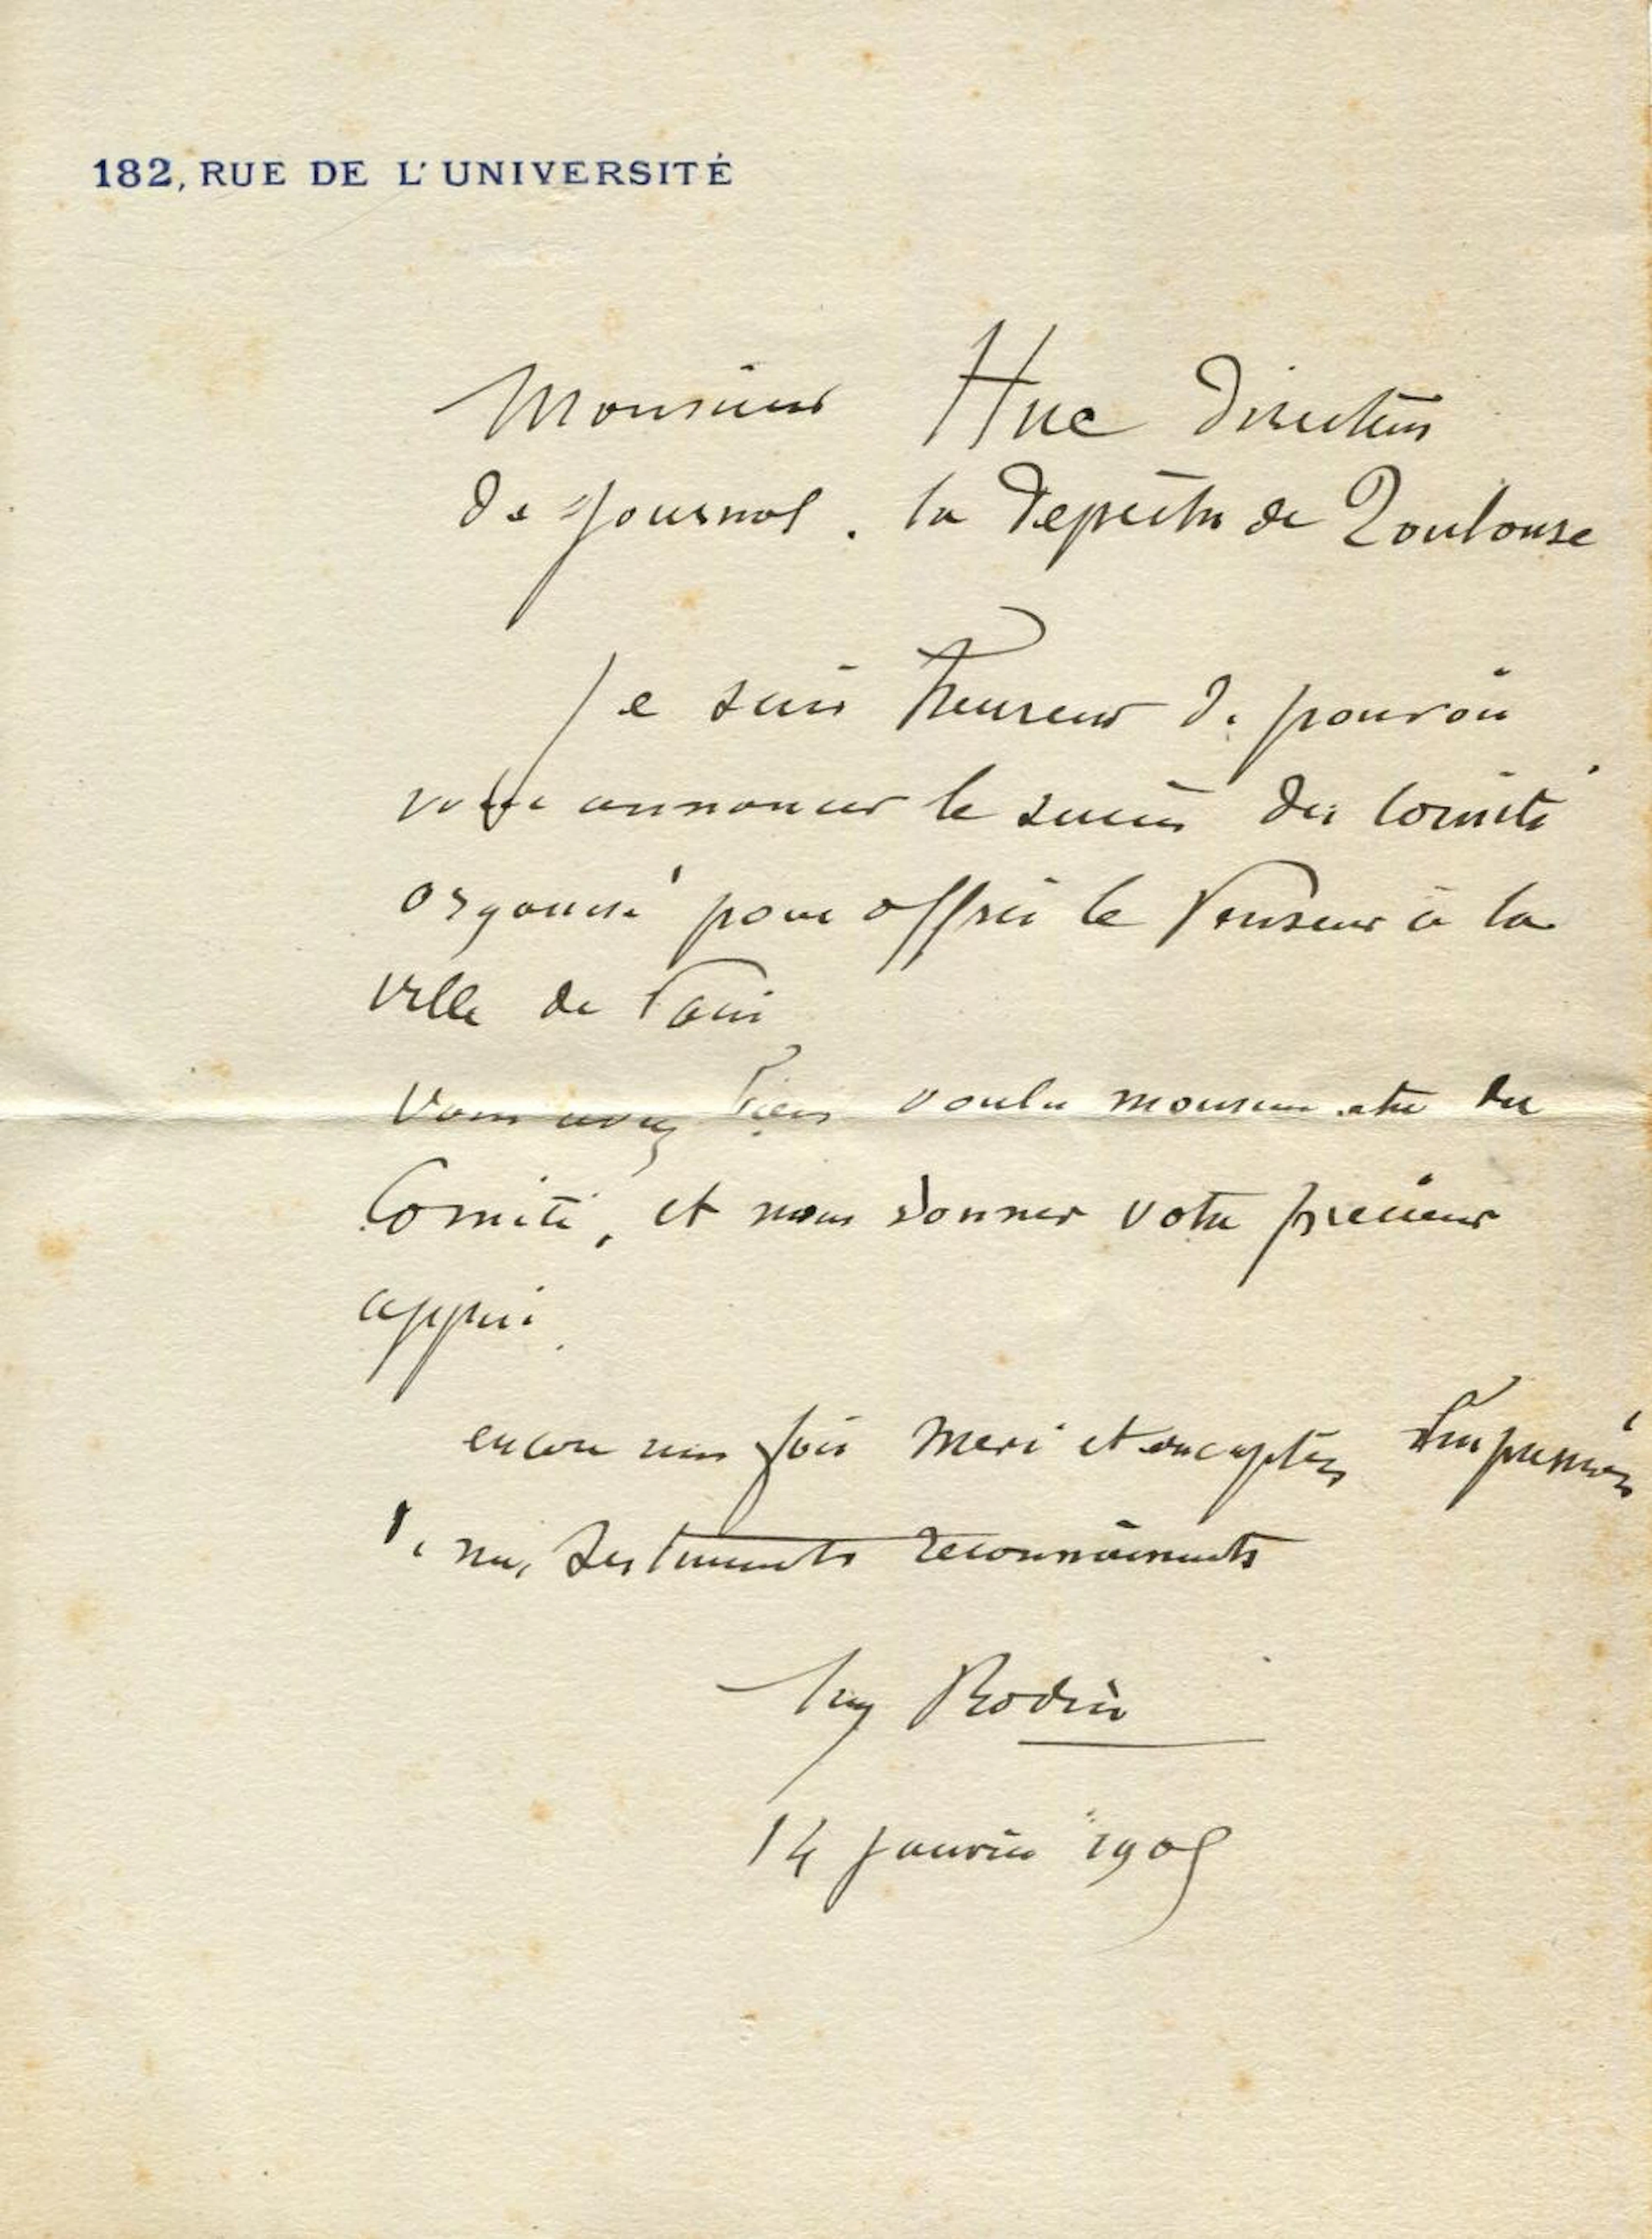 182, RUE DE L'UNIVERSITÉ
Monsieur Huc Directeur
de Journal. la Depêche de Toulouse
Je suis heureux de pouvoir
vous annoncer le succès du Comité
organisé pour offrir le Penseur à la
ville de Paris
Vous avez bien voulu monsieur etre du
Comité, et nous donner votre precieux
appui.
encore une fois merci et acceptez l'expression
de mes sentiments reconnaissants
Aug Rodin
14 janvier 1905